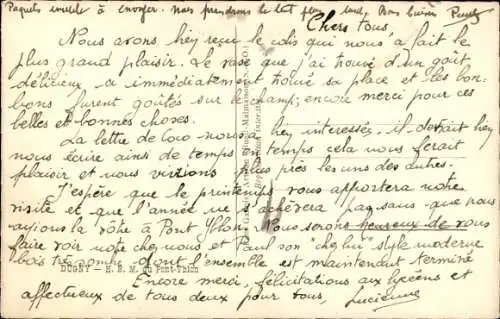 Paquets inutile à envoyer. Nous prendrons le tout plus tard. Bons baisers
Chers tous,
Nous avons, hier, reçu le colis qui nous a fait le
plus grand plaisir. Le vase que j'ai trouvé d'un goût
délicieux a immédiatement trouvé sa place et les bon-
bons furent goûtés sur le champ; encore merci pour ces
belles et bonnes choses.
La lettre de Coco nous a intéressés. il devrait
nous écrire ainsi de temps en temps cela nous ferait
plaisir et nous vivrions plus près les uns des autres.
J'espère que le printemps vous apportera notre
visite et que l'année ne s'achèvera pas sans que nous
ayions la vôtre à Pont Yblon. Nous serons heureux de vous
faire voir notre chez nous et Paul son "chez lui" style moderne
bois dont l'ensemble est maintenant terminé
DUGNY — H. B. M. du Pont-Yblon
Encore merci, félicitations aux lycéens et
affectueux de tous deux pour tous, Lucienne